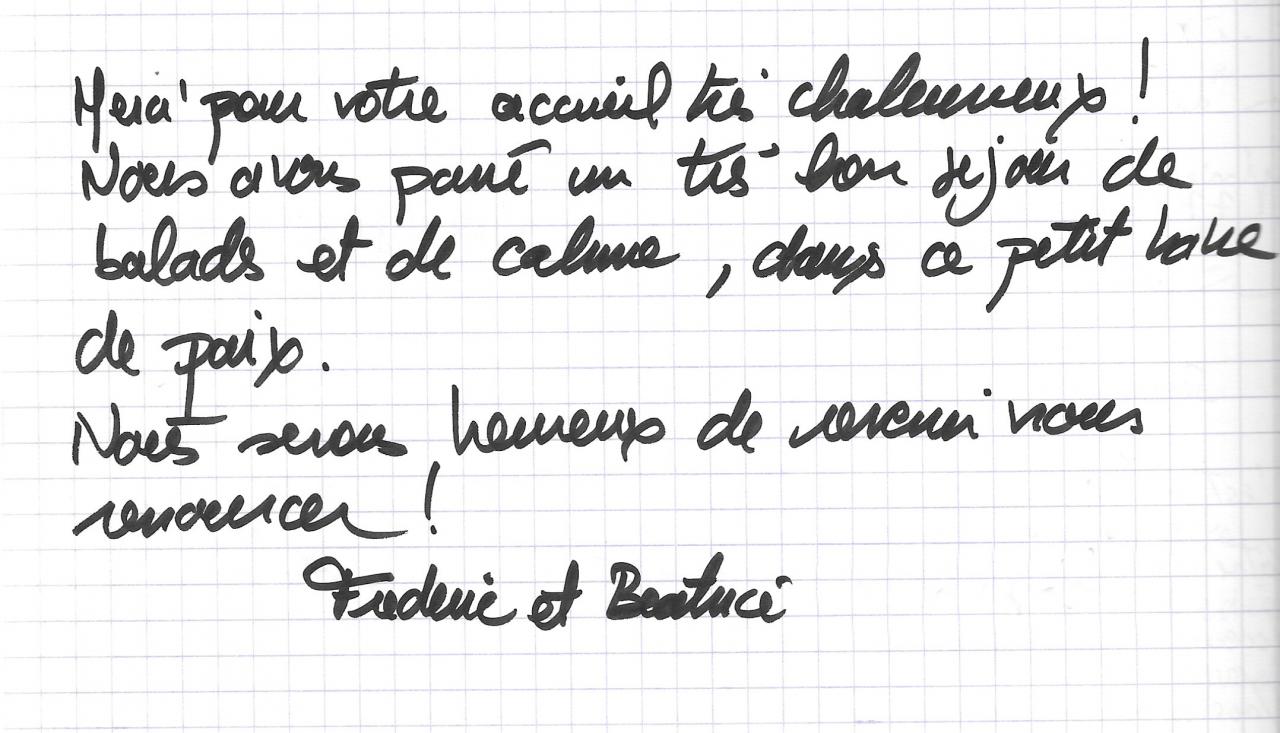 Merci pour votre accueil très chaleureux !
Nous avons passé un très bon séjour de
balads et de calme, dans ce petit havre
de paix.
Nous serons heureux de revenir nous
ressourcer !
Frederic et Beatrice